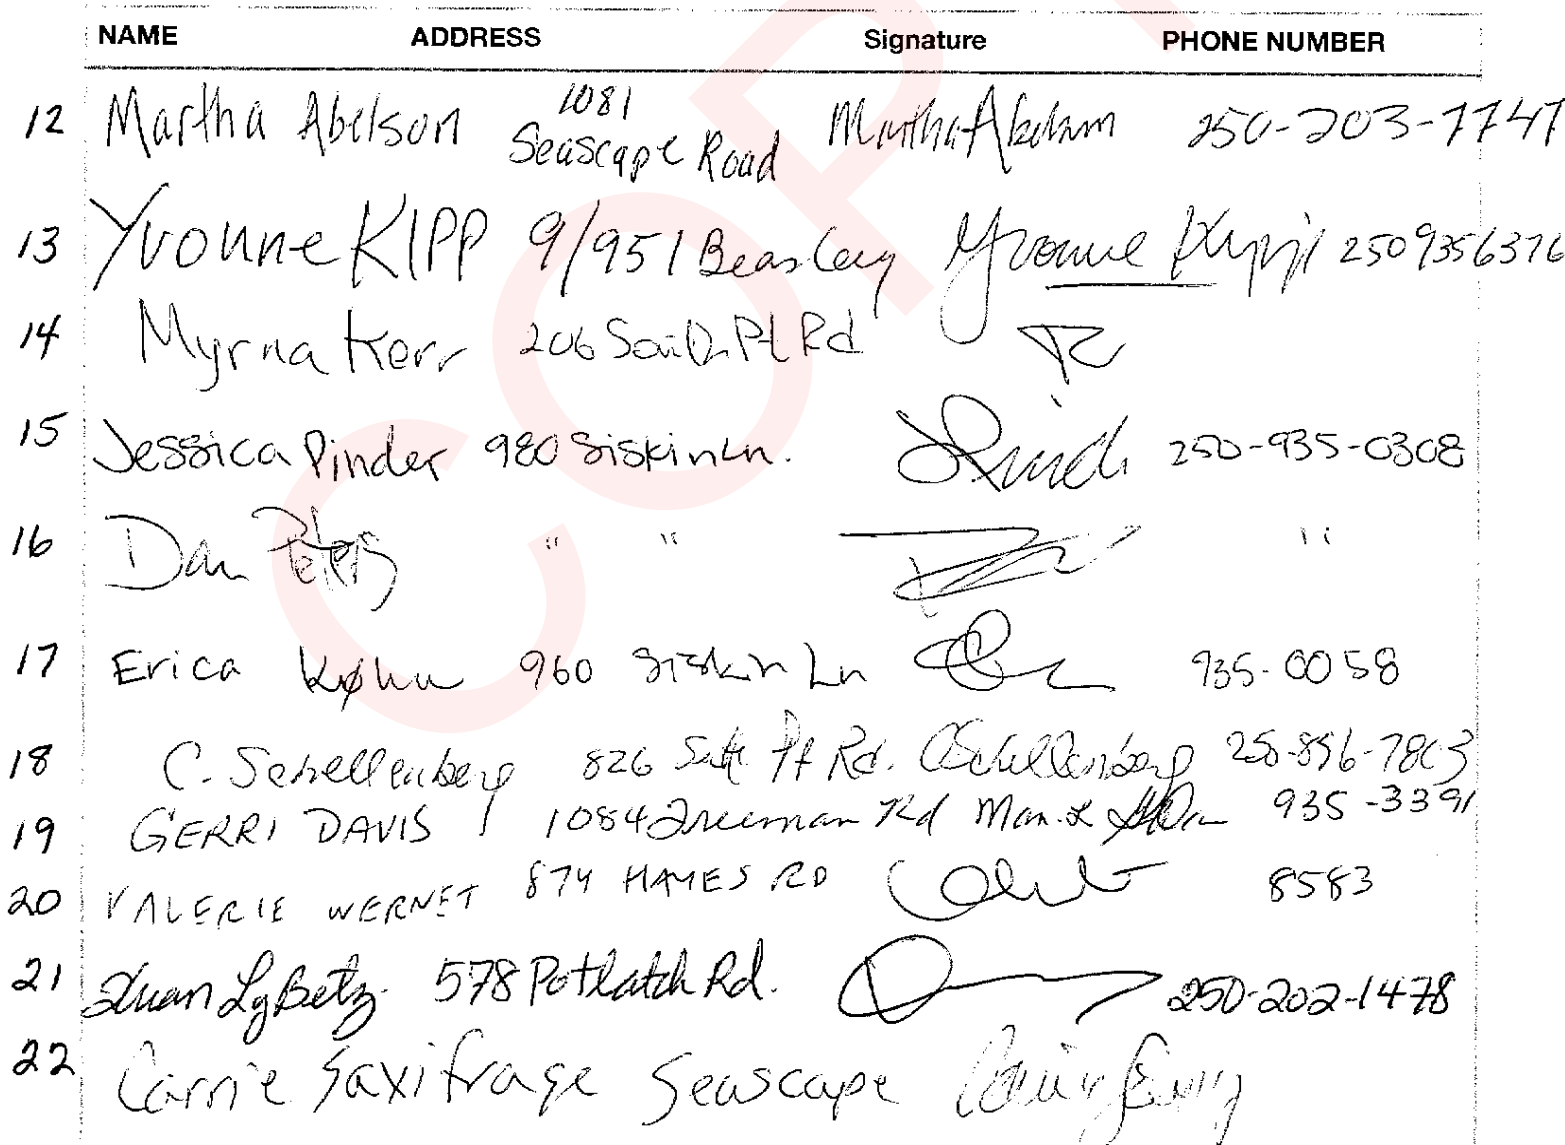 NAME ADDRESS Signature PHONE NUMBER
12 Martha Abelson 1081 Seascape Road Martha Abelson 250-203-7747
13 Yvonne KIPP 9/951 Beasley Yvonne Kipp 250 935 6376
14 Myrna Kerr 206 South Pt Rd
15 Jessica Pinder 980 Siskin Ln. 250-935-0308
16 Dan " " "
17 Erica Køhn 960 Siskin Ln 935-0058
18 C. Schellenberg 826 Pt Rd. CSchellenberg 250-896-7803
19 GERRI DAVIS 1084 Freeman Rd 935-3391
20 VALERIE WERNET 874 HAYES RD 8583
21 Xuan Ly Betz. 578 Potlatch Rd. 250-202-1478
22 Carrie Saxifrage Seascape